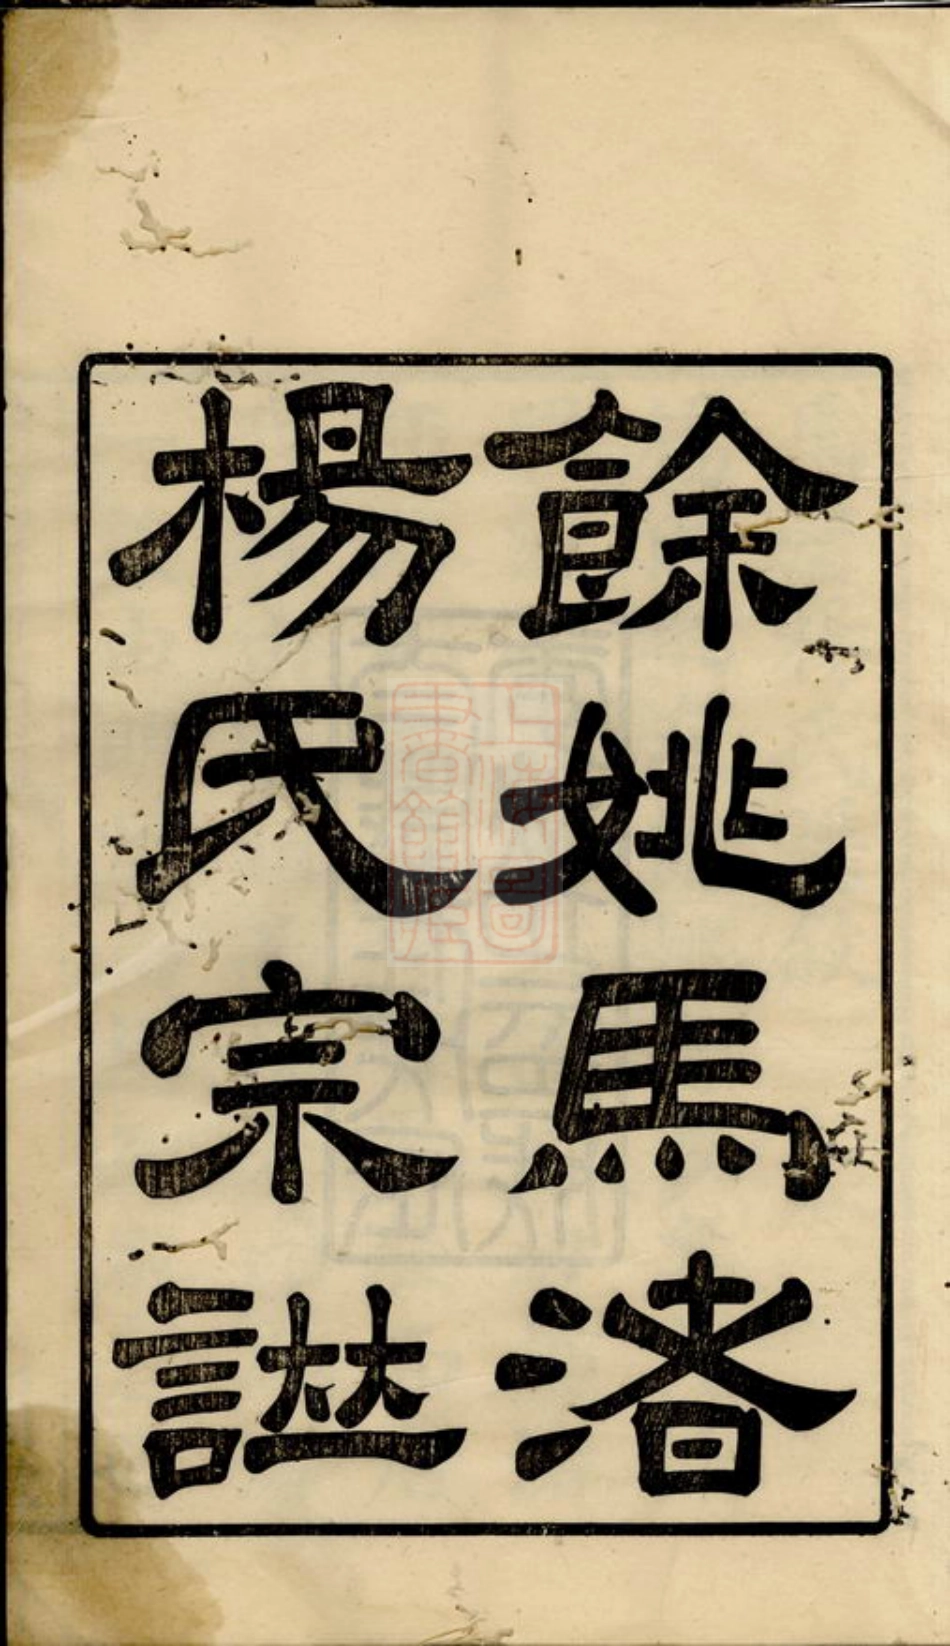 餘姚馬渚
楊氏宗譜